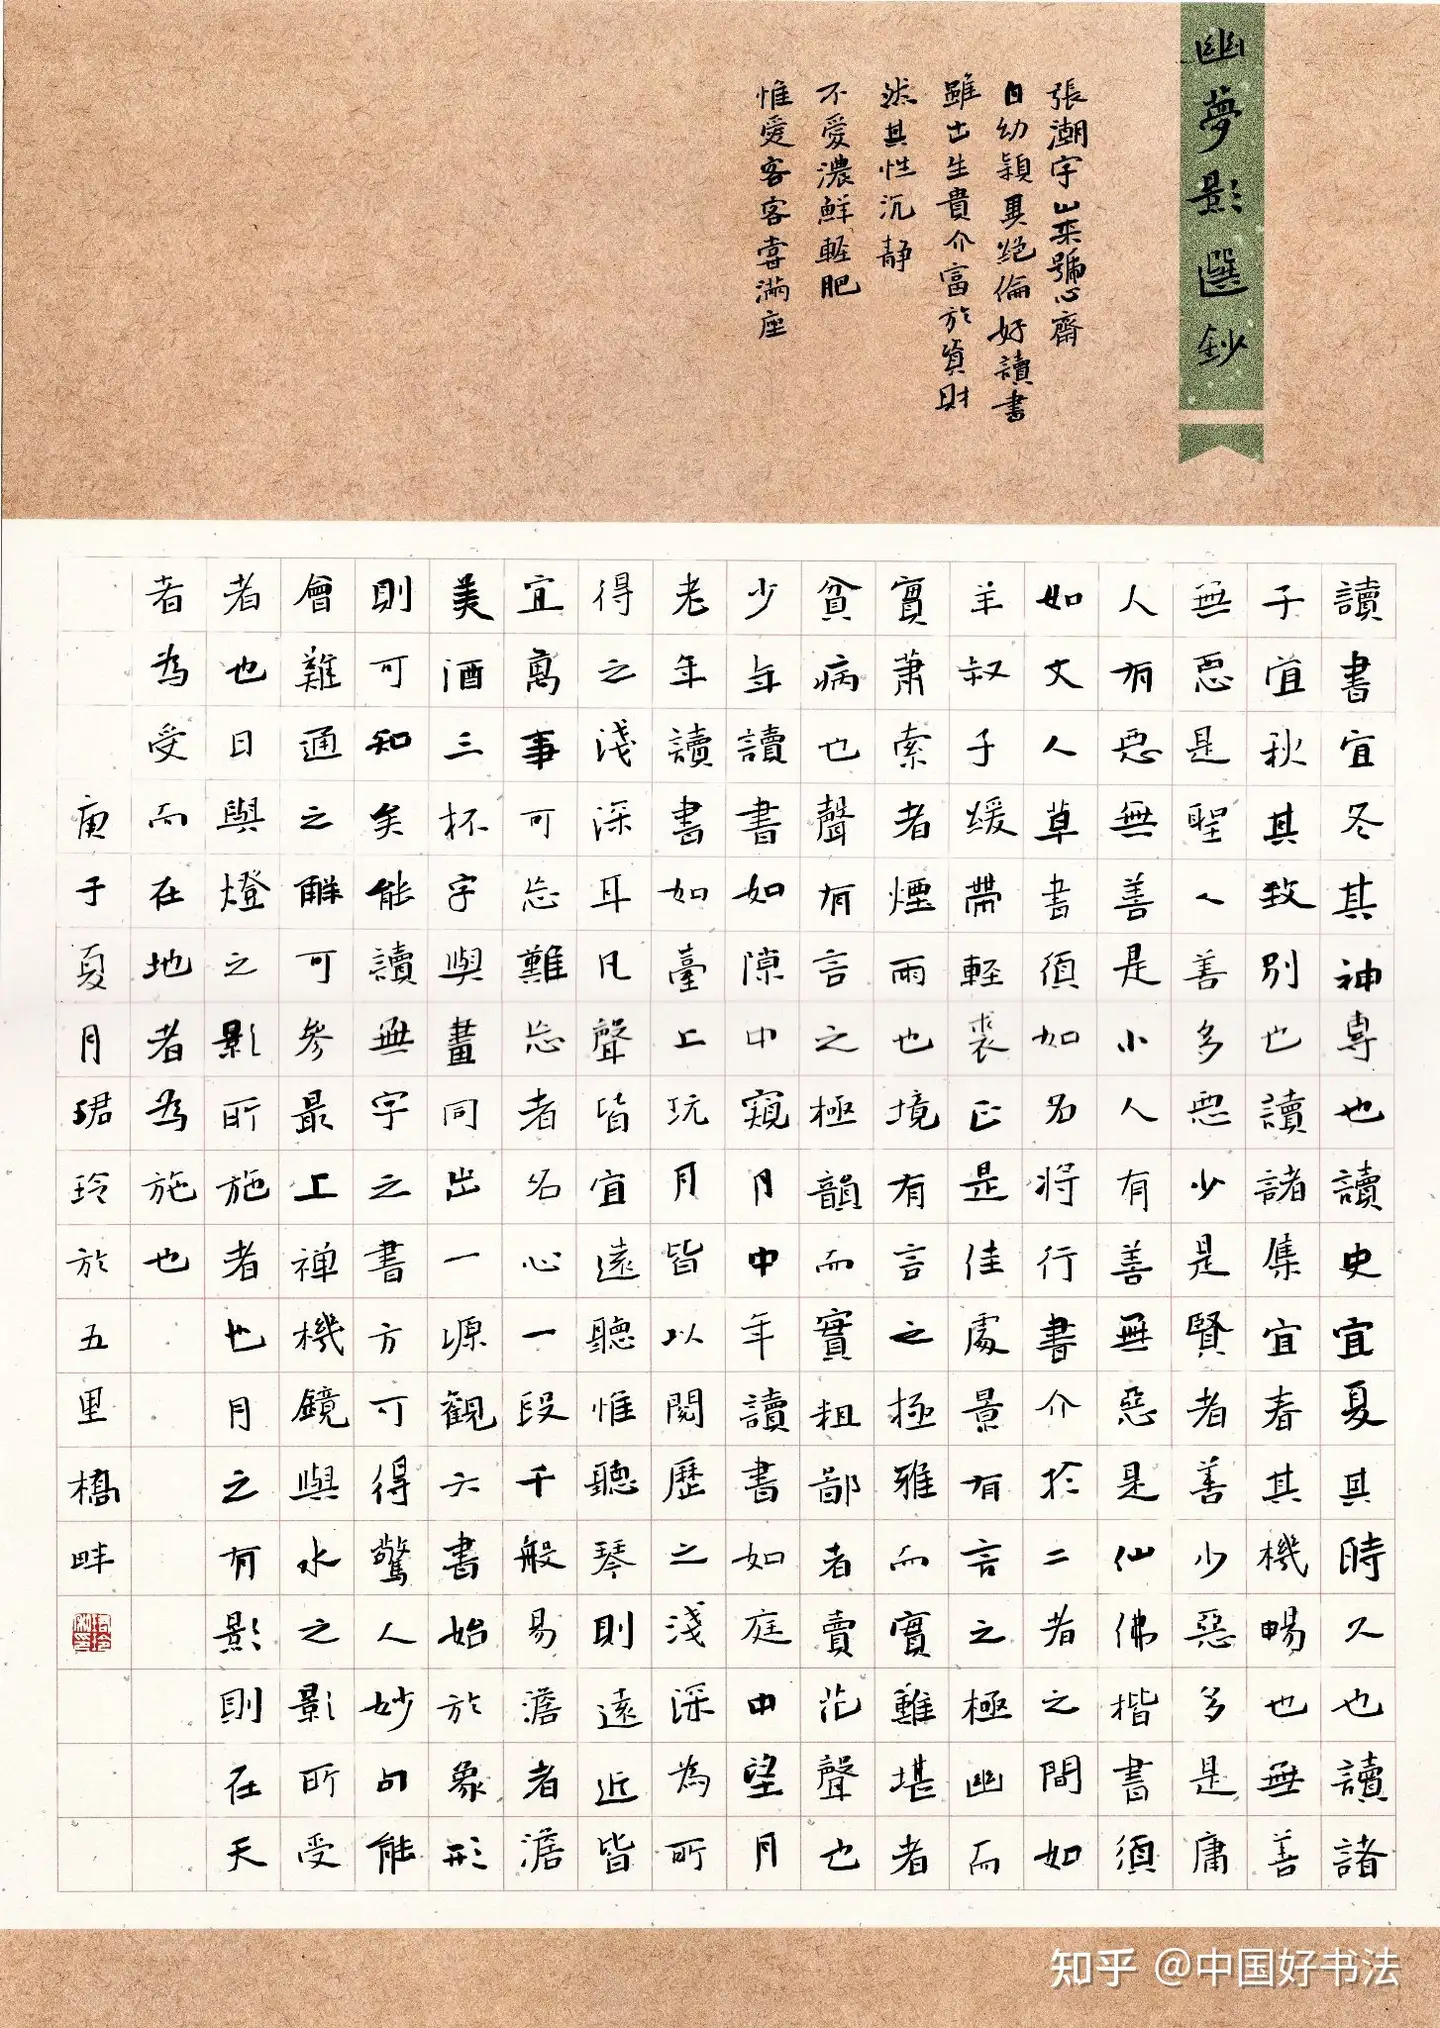 幽夢影選鈔
張潮字山來號心齋
自幼穎異絕倫好讀書
雖出生貴介富於資財
然其性沉靜
不愛濃鮮輕肥
惟愛客客嘗滿座
讀書宜冬其神專也讀史宜夏其時久也讀諸
子宜秋其致別也讀諸集宜春其機暢也無善
無惡是聖人善多惡少是賢者善少惡多是庸
人有惡無善是小人有善無惡是仙佛楷書須
如文人草書須如名將行書介於二者之間如
羊叔子緩帶輕裘正是佳處景有言之極幽而
實蕭索者煙雨也境有言之極雅而實難堪者
貧病也聲有言之極韻而實粗鄙者賣花聲也
少年讀書如隙中窺月中年讀書如庭中望月
老年讀書如臺上玩月皆以閱歷之淺深為所
得之淺深耳凡聲皆宜遠聽惟聽琴則遠近皆
宜萬事可忘難忘者名心一段千般易澹者澹
美酒三杯字與畫同出一源觀六書始於象形
則可知矣能讀無字之書方可得驚人妙句能
會難通之解可參最上禪機鏡與水之影所受
者也日與燈之影所施者也月之有影則在天
者為受而在地者為施也
庚子夏月珺玲於五里橋畔
知乎 @中国好书法